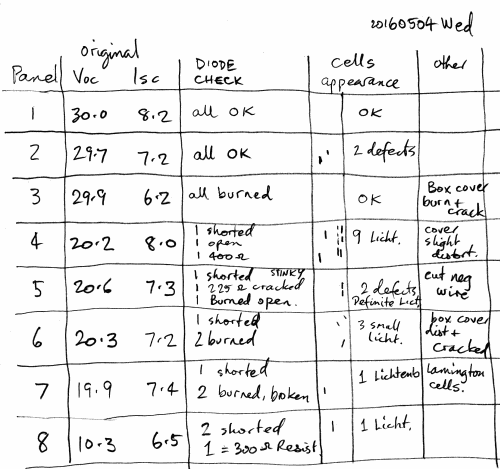 20160504 Wed
original
Panel Voc Isc DIODE CHECK Cells appearance other
1 30.0 8.2 all OK OK
2 29.7 7.2 all OK 2 defects
3 29.9 6.2 all burned OK Box cover burn + crack
4 20.2 8.0 1 shorted 9 Licht. cover
1 open slight
1 400Ω distort.
5 20.6 7.3 1 shorted STINKY 2 defects cut neg
1 225Ω cracked Definite Lict, wire
1 Burned open.
6 20.3 7.2 1 shorted 3 small box cover
2 burned licht. dist +
cracked
7 19.9 7.4 1 shorted 1 Lichtenb lamington
2 burned, broken cells.
8 10.3 6.5 2 shorted 1 Licht,
1 = 300Ω Resist